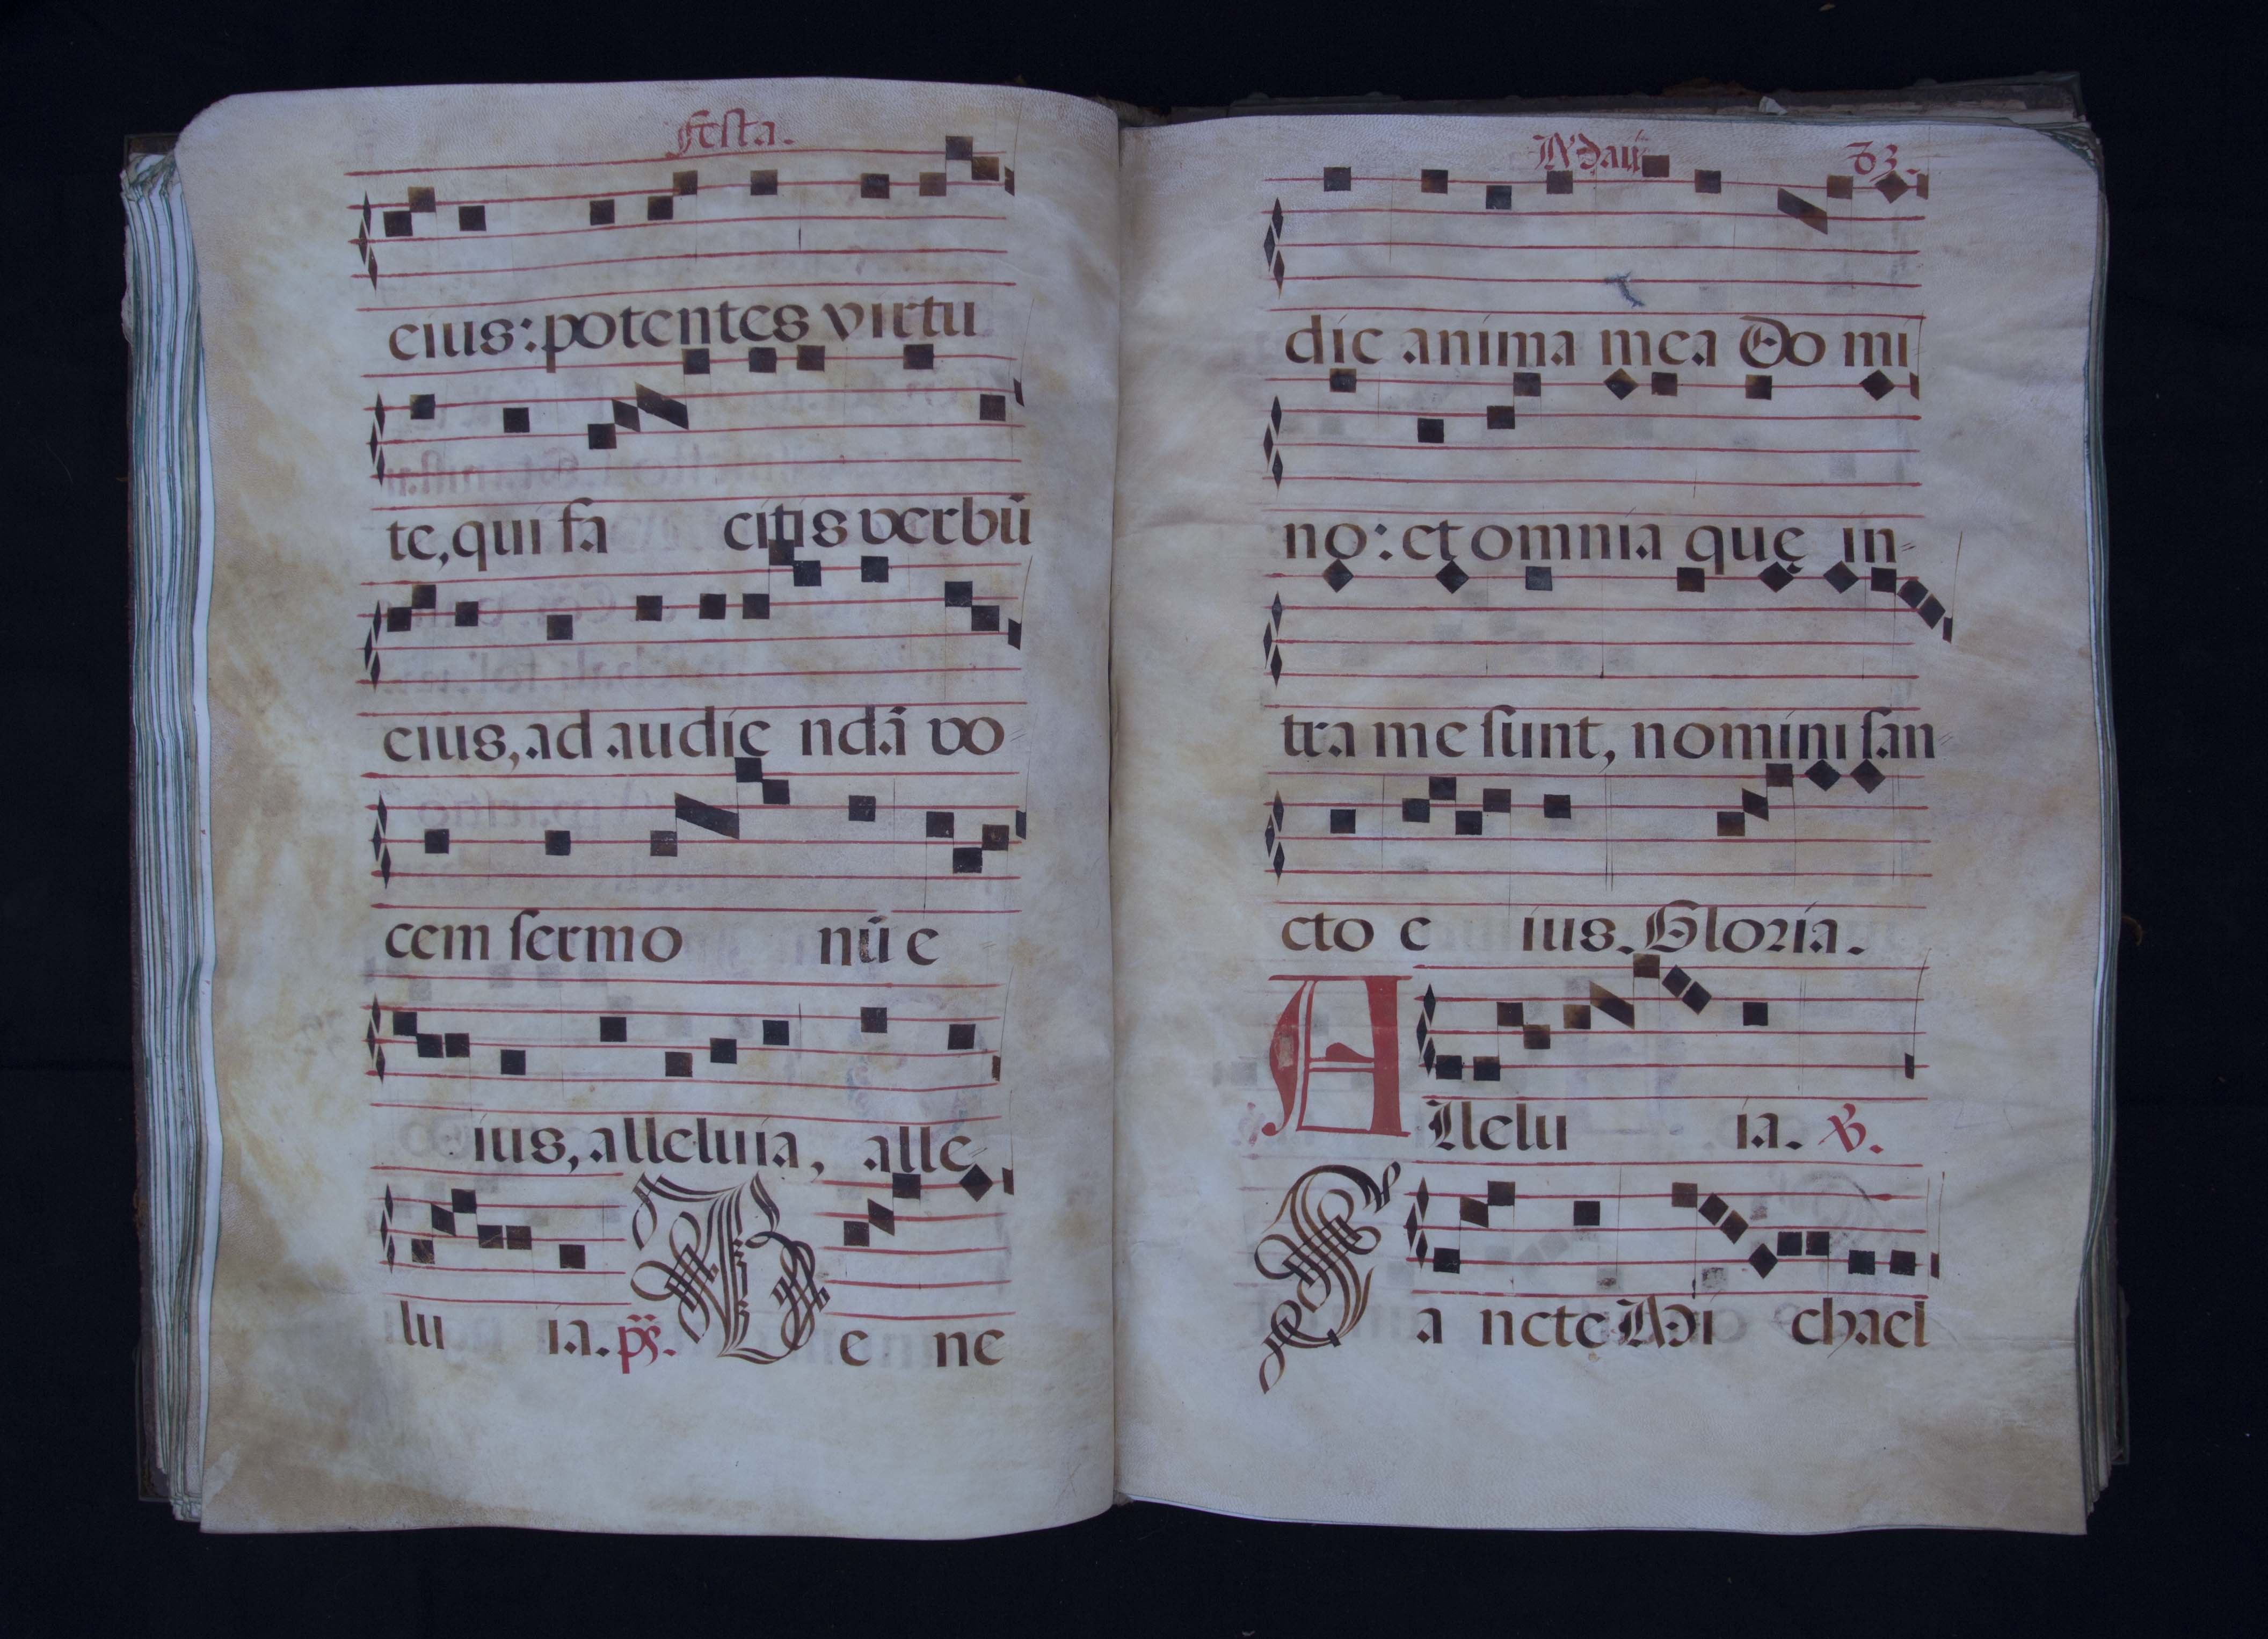 Festa.
eius: potentes virtu
te, qui fa citis verbū
eius, ad audie ndā vo
cem sermo nū e
ius, alleluia, alle-
lu ia. ps. Be ne
Maii 83.
dic anima mea Do mi
no: et omnia quę in-
tra me sunt, nomini san-
cto e ius. Gloria.
Allelu ia. ℣.
Sa ncte Mi chael